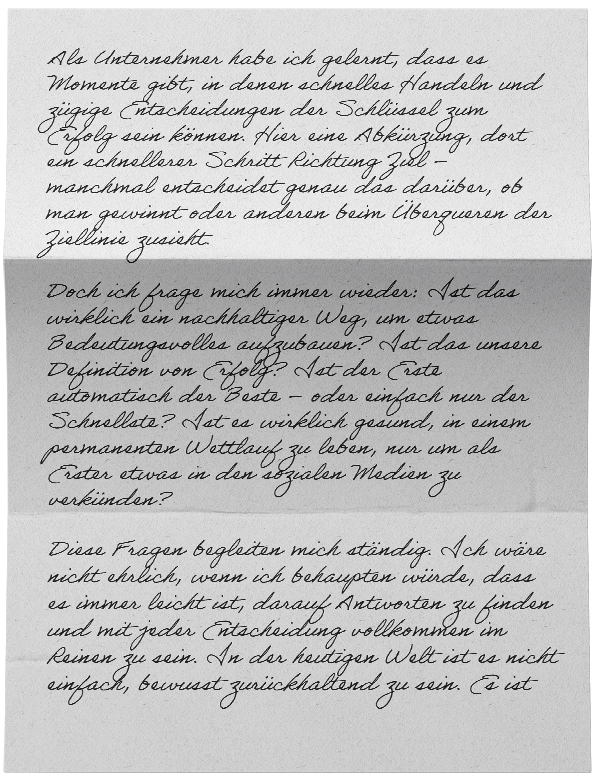 Als Unternehmer habe ich gelernt, dass es
Momente gibt, in denen schnelles Handeln und
zügige Entscheidungen der Schlüssel zum
Erfolg sein können. Hier eine Abkürzung, dort
ein schnellerer Schritt Richtung Ziel –
manchmal entscheidet genau das darüber, ob
man gewinnt oder anderen beim Überqueren der
Ziellinie zusieht.
Doch ich frage mich immer wieder: Ist das
wirklich ein nachhaltiger Weg, um etwas
Bedeutungsvolles aufzubauen? Ist das unsere
Definition von Erfolg? Ist der Erste
automatisch der Beste – oder einfach nur der
Schnellste? Ist es wirklich gesund, in einem
permanenten Wettlauf zu leben, nur um als
Erster etwas in den sozialen Medien zu
verkünden?
Diese Fragen begleiten mich ständig. Ich wäre
nicht ehrlich, wenn ich behaupten würde, dass
es immer leicht ist, darauf Antworten zu finden
und mit jeder Entscheidung vollkommen im
Reinen zu sein. In der heutigen Welt ist es nicht
einfach, bewusst zurückhaltend zu sein. Es ist